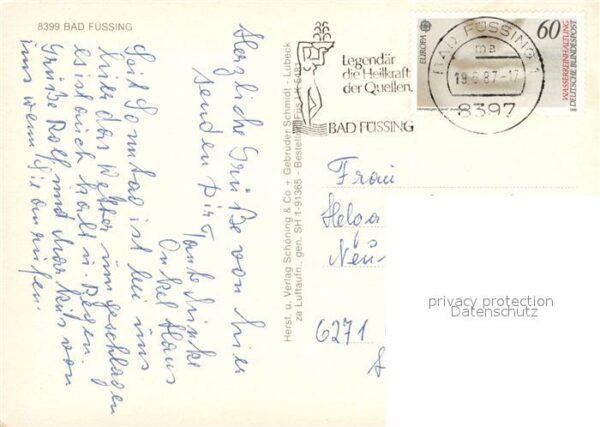 8399 BAD FÜSSING
Herzliche Grüße von hier
senden Dir Tante
Onkel Hans
Seit Sonntag ist bei uns
hier das Wetter umgeschlagen
es ist auch kalt u. Regen.
Grüße Rolf und Markus von
uns wenn Sie anrufen.
Herst. u. Verlag Schöning & Co + Gebrüder Schmidt - Lübeck
za Luftaufn., gen. SH 1-91365 - Bestell
Legendär
die Heilkraft
der Quellen.
BAD FÜSSING
EUROPA
60
WASSERREINHALTUNG
DEUTSCHE BUNDESPOST
BAD FÜSSING 1
ma
19.6.87-17
8397
Frau
Helga
Neu-
6271
privacy protection
Datenschutz